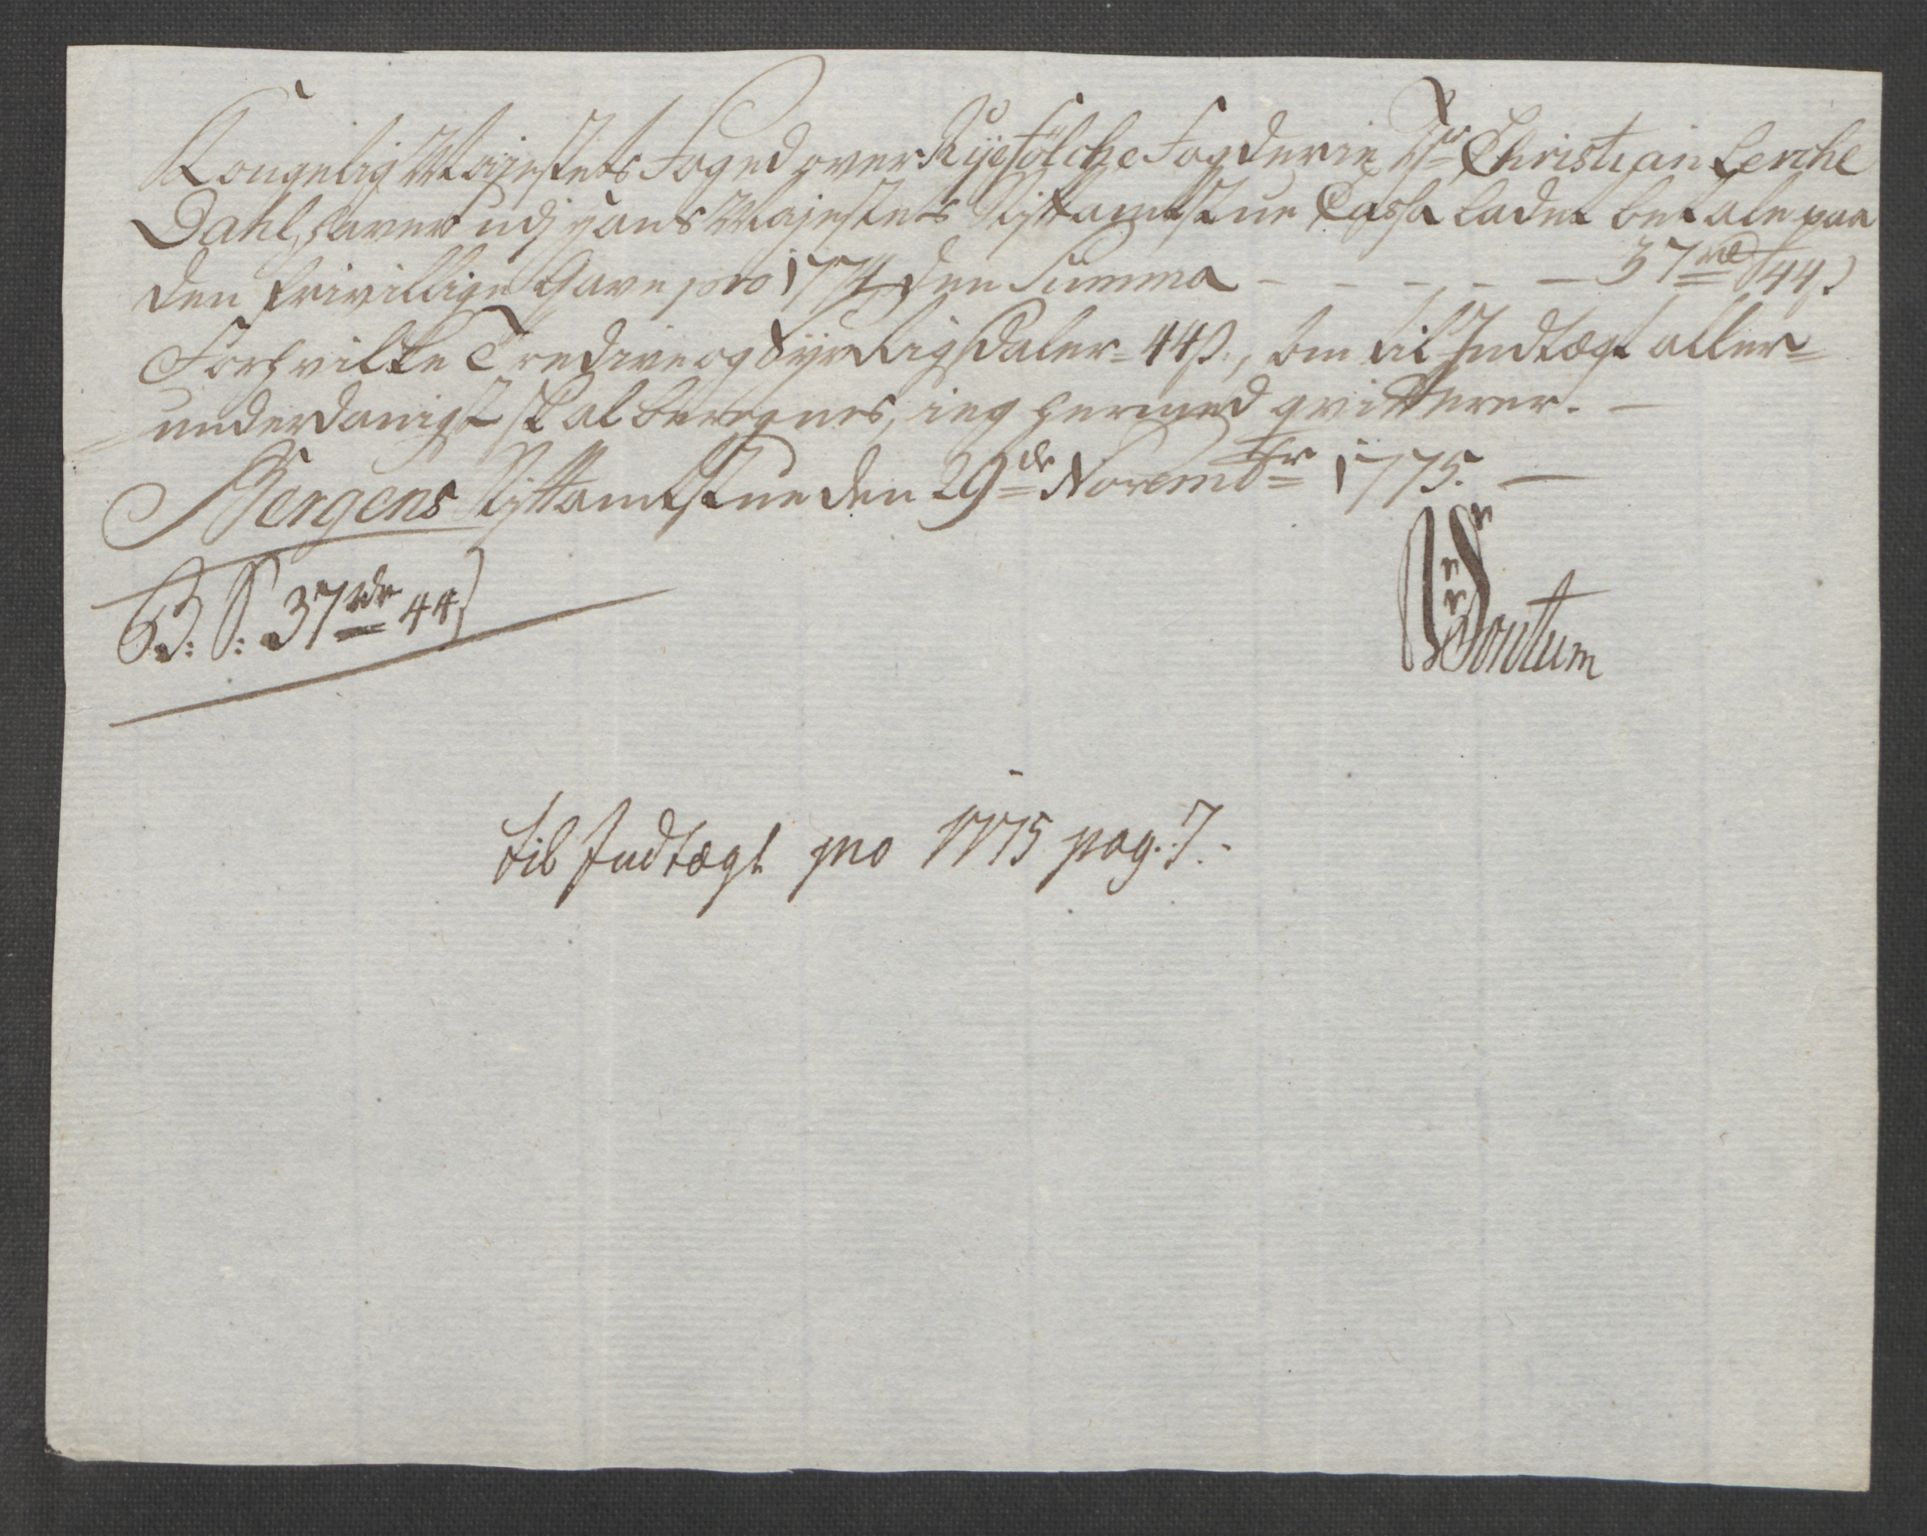 Kongelig Mayestets Foged over Ryefölche Fogderie Sr Christian Lerche
Dahl, haver udj hans Mayestets Stiftamtstue Cassa ladet betale paa
den frivillige Gave pro 1774 den Summa - - - - - 37 rd 44 s.
Forhvilke Tredive og Syv Rigsdaler 44 s., som til Indtægt aller=
underdanigst skal beregnes, ieg hermed qvitterer. -
Bergens Stiftamtstue den 29de Novembr 1775. -
B: S: 37 rdr 44 s
til Indtægt pro 1775 pag. 7.-